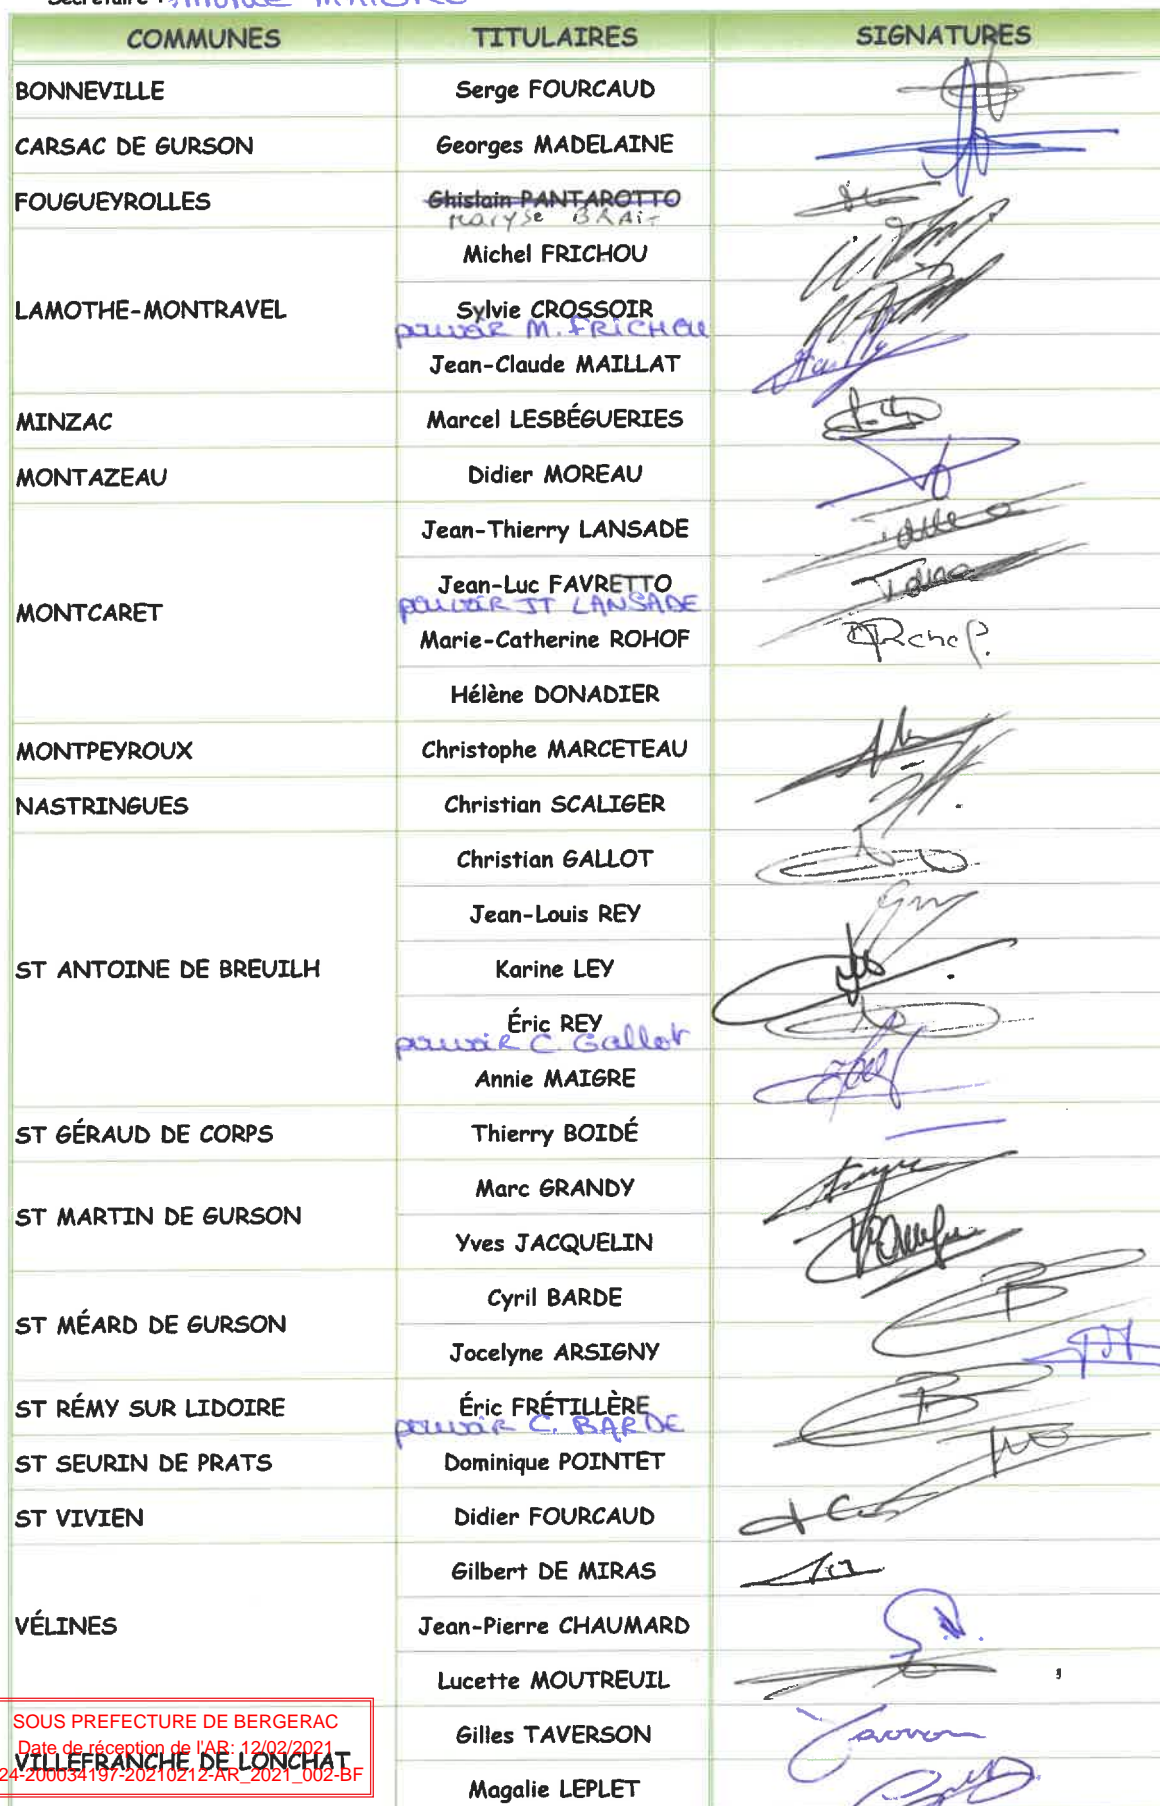 Secrétaire :
COMMUNES TITULAIRES SIGNATURES
BONNEVILLE Serge FOURCAUD
CARSAC DE GURSON Georges MADELAINE
FOUGUEYROLLES Ghislain PANTAROTTO
Maryse BRAIT
Michel FRICHOU
LAMOTHE-MONTRAVEL Sylvie CROSSOIR
pouvoir M. FRICHOU
Jean-Claude MAILLAT
MINZAC Marcel LESBÉGUERIES
MONTAZEAU Didier MOREAU
Jean-Thierry LANSADE
Jean-Luc FAVRETTO
pouvoir JT LANSADE
MONTCARET
Marie-Catherine ROHOF
Hélène DONADIER
MONTPEYROUX Christophe MARCETEAU
NASTRINGUES Christian SCALIGER
Christian GALLOT
Jean-Louis REY
ST ANTOINE DE BREUILH Karine LEY
Éric REY
pouvoir C. Gallot
Annie MAIGRE
ST GÉRAUD DE CORPS Thierry BOIDÉ
Marc GRANDY
ST MARTIN DE GURSON
Yves JACQUELIN
Cyril BARDE
ST MÉARD DE GURSON
Jocelyne ARSIGNY
ST RÉMY SUR LIDOIRE Éric FRÉTILLÈRE
pouvoir C. BARDE
ST SEURIN DE PRATS Dominique POINTET
ST VIVIEN Didier FOURCAUD
Gilbert DE MIRAS
VÉLINES Jean-Pierre CHAUMARD
Lucette MOUTREUIL
Gilles TAVERSON
VILLEFRANCHE DE LONCHAT
Magalie LEPLET
SOUS PREFECTURE DE BERGERAC
Date de réception de l'AR: 12/02/2021
24-200034197-20210212-AR_2021_002-BF